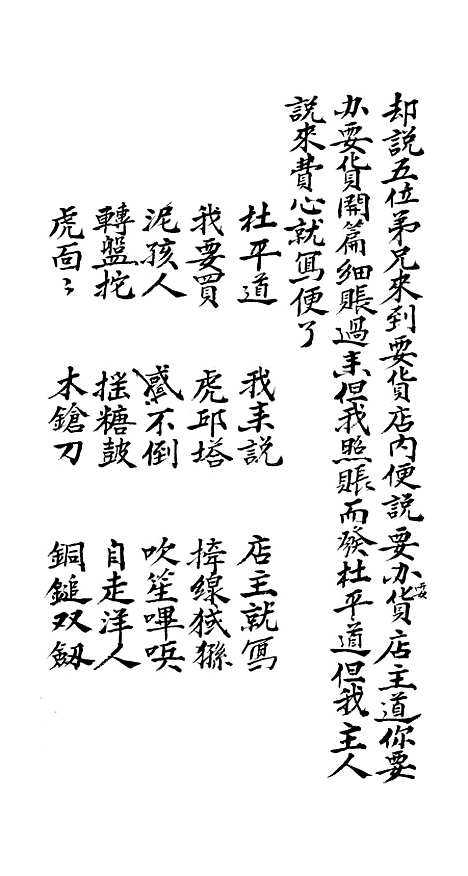 却說五位弟兄來到耍貨店内便說要办耍貨店主道你要
办耍貨開篇細賬過来但我照賬而發杜平道但我主人
說來費心就寫便了
杜平道　我来説　店主就寫
我要買　虎邱塔　掎線猢猻
泥孩人　不倒　吹笙嗶唝
轉盤挖　摇糖鼓　自走洋人
虎面〻　木鎗刀　銅鎚双劔